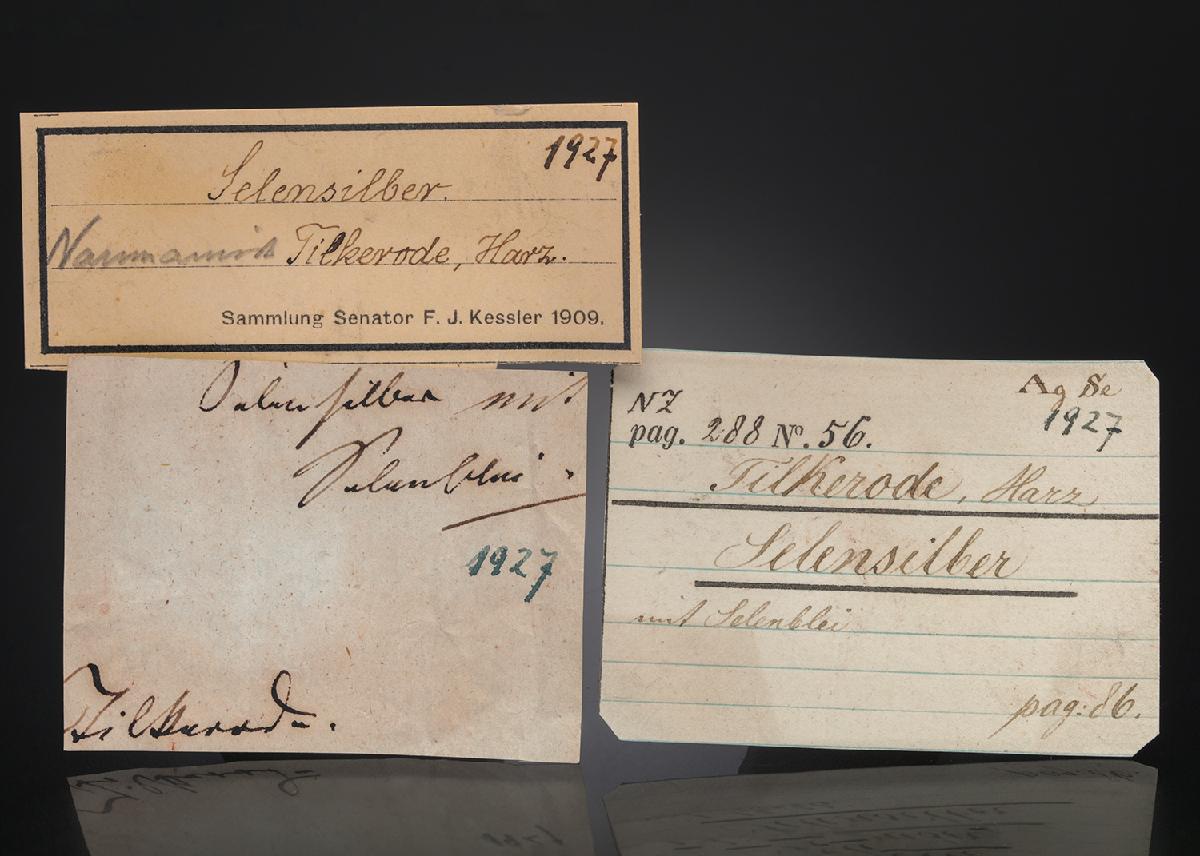 1927
Selensilber.
Naumannit Tilkerode, Harz.
Sammlung Senator F. J. Kessler 1909.
Selensilber mit
Selenblei.
1927
Tilkerode.
Ag Se
NZ
1927
pag. 288 No. 56.
Tilkerode, Harz
Selensilber
mit Selenblei
pag: 86.